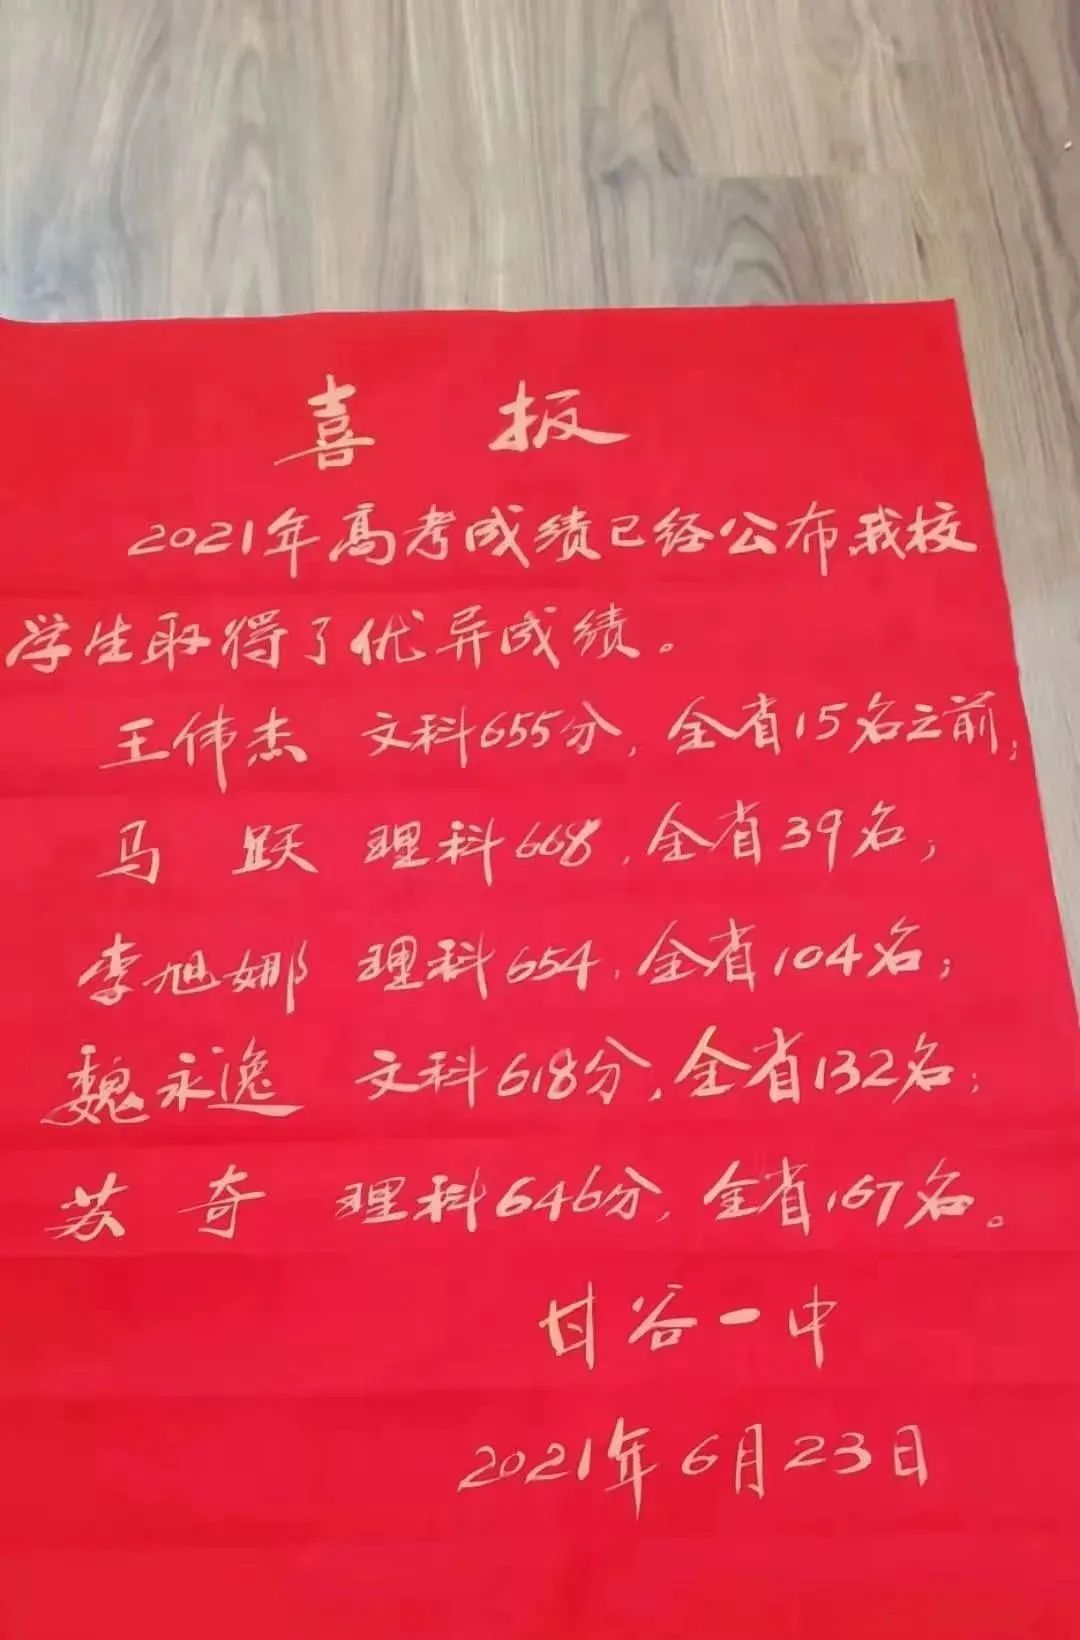 喜 报
2021年高考成绩已经公布我校
学生取得了优异成绩。
王伟杰 文科655分，全省15名之前；
马 跃 理科668，全省39名；
李旭娜 理科654，全省104名；
魏永逸 文科618分，全省132名；
苏 奇 理科646分，全省167名。
甘谷一中
2021年6月23日